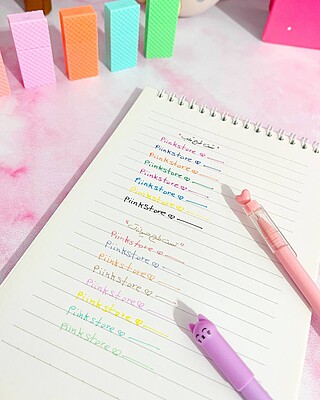 Piinkstore
Piinkstore
Piinkstore
Piinkstore
Piinkstore
Piinkstore
Piinkstore
PiinkStore
Piinkstore
Piinkstore
Piinkstore
Piinkstore
Piinkstore
Piinkstore
Piinkstore
Piinkstore